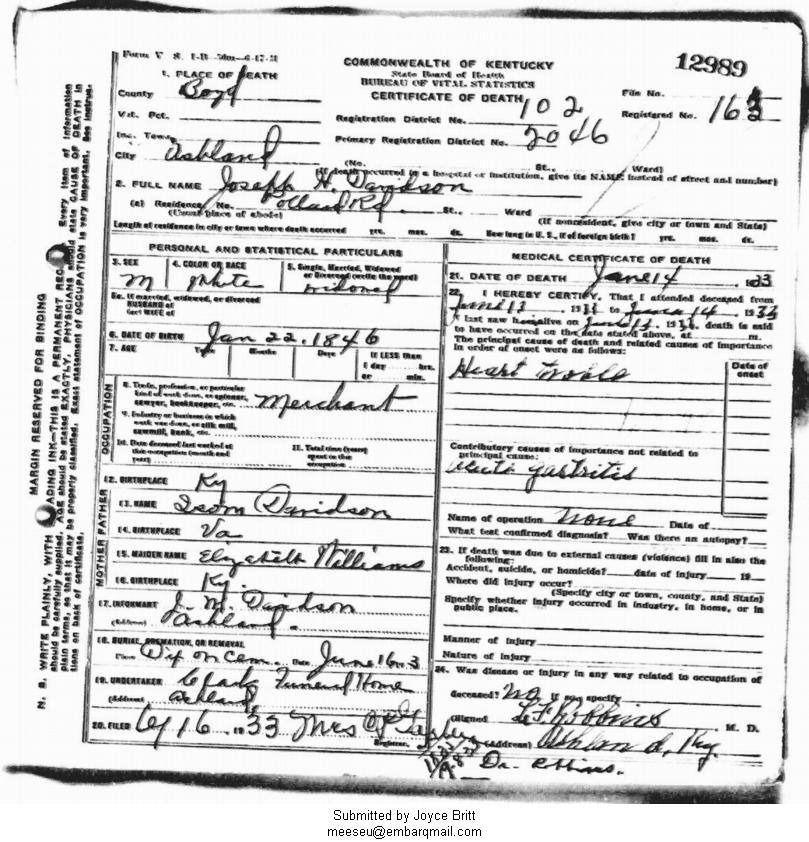 Form V
COMMONWEALTH OF KENTUCKY
State Board of Health
BUREAU OF VITAL STATISTICS
CERTIFICATE OF DEATH
12989
1. PLACE OF DEATH
County Boyd
File No.
Registered No. 16
Vot. Pct.
Registration District No. 102
Inc. Town
Primary Registration District No. 2046
City Ashland
(No. St., Ward)
(If death occurred in a hospital or institution, give its NAME instead of street and number)
2. FULL NAME Joseph H. Davidson
(a) Residence. No. Pollard Rd St., Ward
(Usual place of abode) (If nonresident, give city or town and State)
Length of residence in city or town where death occurred yrs. mos. ds. How long in U. S., if of foreign birth? yrs. mos. ds.
PERSONAL AND STATISTICAL PARTICULARS
3. SEX M
4. COLOR OR RACE White
5. Single, Married, Widowed or Divorced (write the word) Widowed
5a. If married, widowed, or divorced
HUSBAND of
(or) WIFE of
6. DATE OF BIRTH Jan 22, 1846
7. AGE Years Months Days If LESS than
1 day hrs.
or min.
OCCUPATION
8. Trade, profession, or particular
kind of work done, as spinner,
sawyer, bookkeeper, etc. Merchant
9. Industry or business in which
work was done, as silk mill,
sawmill, bank, etc.
10. Date deceased last worked at
this occupation (month and
year)
11. Total time (years)
spent in this
occupation
12. BIRTHPLACE Ky
FATHER
13. NAME Isom Davidson
14. BIRTHPLACE Va
MOTHER
15. MAIDEN NAME Elizabeth Williams
16. BIRTHPLACE Ky.
17. INFORMANT J. M. Davidson
(Address) Ashland.
18. BURIAL, CREMATION, OR REMOVAL
Place Dixon Cem. Date June 16
19. UNDERTAKER Clark Funeral Home
(Address) Ashland
20. FILED 6/16 1933 Mrs
Registrar.
MEDICAL CERTIFICATE OF DEATH
21. DATE OF DEATH June 14 1933
22. I HEREBY CERTIFY, That I attended deceased from
June 13, 1933 to June 14, 1933
I last saw him alive on June 14, 1933, death is said
to have occurred on the date stated above, at m.
The principal cause of death and related causes of importance
in order of onset were as follows:
Date of
onset
Heart Trouble
Contributory causes of importance not related to
principal cause:
Acute gastritis
Name of operation None Date of
What test confirmed diagnosis? Was there an autopsy?
23. If death was due to external causes (violence) fill in also the
following:
Accident, suicide, or homicide? date of injury 19
Where did injury occur?
(Specify city or town, county, and State)
Specify whether injury occurred in industry, in home, or in
public place.
Manner of injury
Nature of injury
24. Was disease or injury in any way related to occupation of
deceased? No If so specify
(Signed) Robbins M. D.
(Address) Ashland, Ky.
Dr. Robbins.
MARGIN RESERVED FOR BINDING
N. B. WRITE PLAINLY, WITH UNFADING INK—THIS IS A PERMANENT RECORD. Every item of information
should be carefully supplied. AGE should be stated EXACTLY. PHYSICIANS should state CAUSE OF DEATH in
plain terms, so that it may be properly classified. Exact statement of OCCUPATION is very important. See instruc-
tions on back of certificate.
Submitted by Joyce Britt
meeseu@embarqmail.com